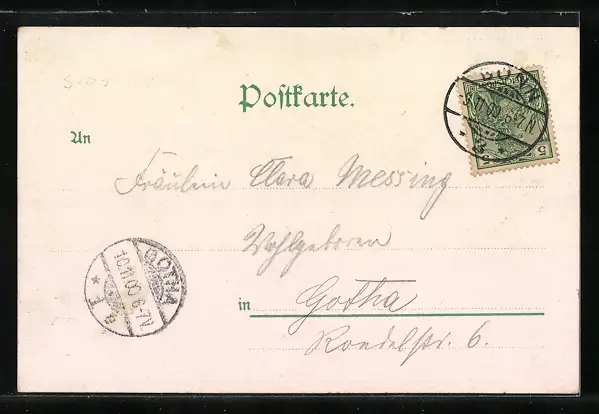 Postkarte.
9.11.00.6-7N
5
An
Fräulein Clara Messing
Wohlgeboren
GOTHA
10.11.00.6-7V.
* 1 e
in Gotha
Rondelstr. 6.